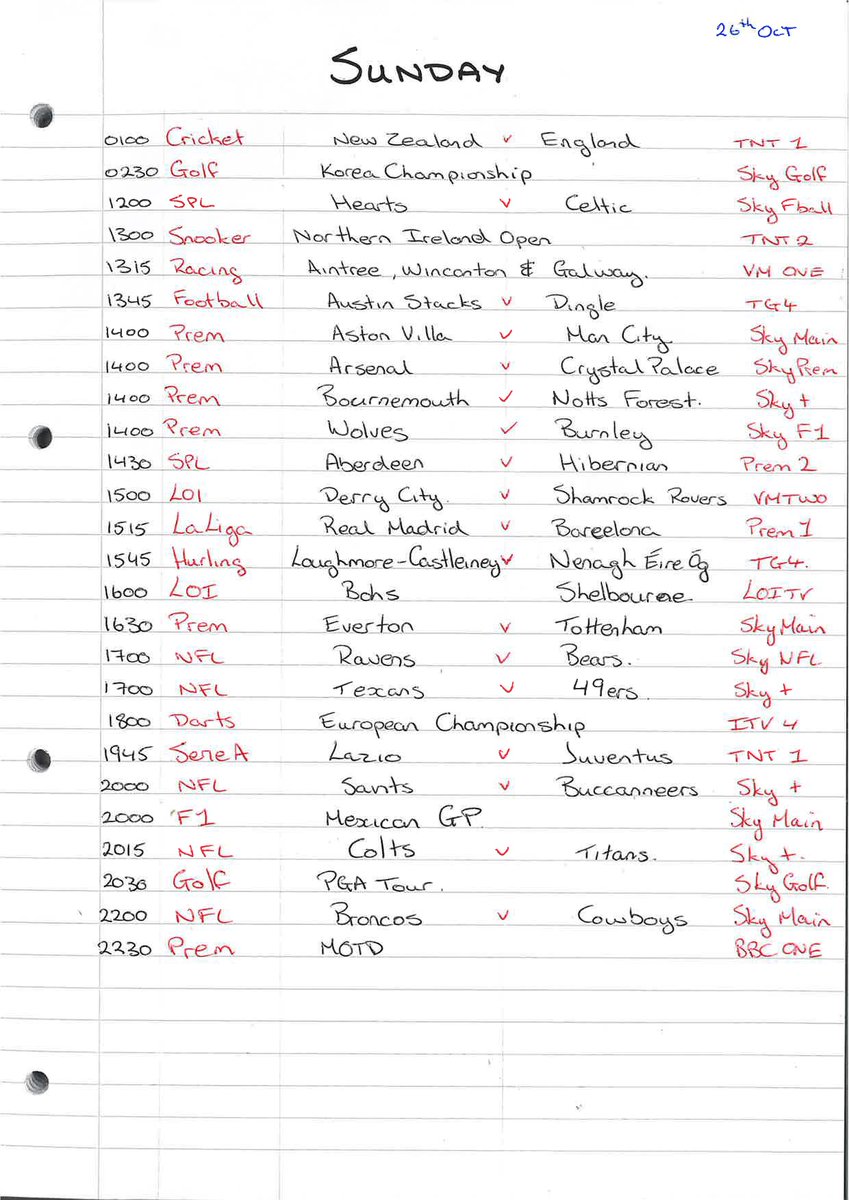 26th OCT
SUNDAY
0100 Cricket New Zealand v England TNT 1
0230 Golf Korea Championship Sky Golf
1200 SPL Hearts v Celtic Sky Fball
1300 Snooker Northern Ireland Open TNT 2
1315 Racing Aintree, Wincanton & Galway. VM ONE
1345 Football Austin Stacks v Dingle TG4
1400 Prem Aston Villa v Man City Sky Main
1400 Prem Arsenal v Crystal Palace Sky Prem
1400 Prem Bournemouth v Notts Forest. Sky +
1400 Prem Wolves v Burnley Sky F1
1430 SPL Aberdeen v Hibernian Prem 2
1500 LOI Derry City. v Shamrock Rovers VMTWO
1515 LaLiga Real Madrid v Barcelona Prem 1
1545 Hurling Loughmore-Castleiney v Nenagh Éire Óg TG4.
1600 LOI Bohs Shelbourne LOITV
1630 Prem Everton v Tottenham Sky Main
1700 NFL Ravens v Bears. Sky NFL
1700 NFL Texans v 49ers. Sky +
1800 Darts European Championship ITV 4
1945 Serie A Lazio v Juventus TNT 1
2000 NFL Saints v Buccanneers Sky +
2000 F1 Mexican GP. Sky Main
2015 NFL Colts v Titans. Sky +.
2030 Golf PGA Tour. Sky Golf.
2200 NFL Broncos v Cowboys Sky Main
2230 Prem MOTD BBC ONE